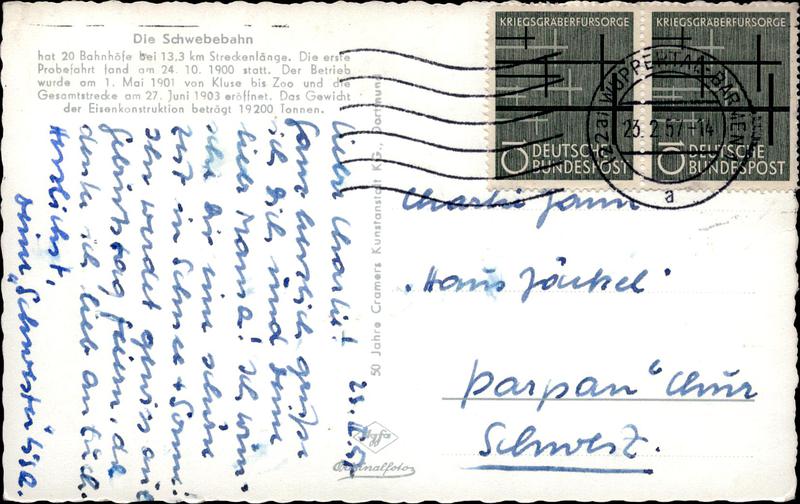 Die Schwebebahn
hat 20 Bahnhöfe bei 13,3 km Streckenlänge. Die erste
Probefahrt fand am 24. 10. 1900 statt. Der Betrieb
wurde am 1. Mai 1901 von Kluse bis Zoo und die
Gesamtstrecke am 27. Juni 1903 eröffnet. Das Gewicht
der Eisenkonstruktion beträgt 19200 Tonnen.
KRIEGSGRÄBERFÜRSORGE
10 DEUTSCHE
BUNDESPOST
KRIEGSGRÄBERFÜRSORGE
10 DEUTSCHE
BUNDESPOST
(22a) WUPPERTAL-BARMEN
23.2.57-14
a
23. II. 57.
Liebe Charlie!
Ganz herzlich grüße
ich Dich und Deine
liebe Mama! Ich wün-
sche Dir eine schöne
Zeit in Schnee + Sonne!
Ihr werdet gewiss auch
Geburtstag feiern, da
denke ich lieb an Euch.
Herzlichst,
Deine „Schwester" Lisl.
50 Jahre Cramers Kunstanstalt KG., Dortmund
Agfa
Originalfoto
Charlie
„Haus Jäckel"
Parpan / Chur
Schweiz.